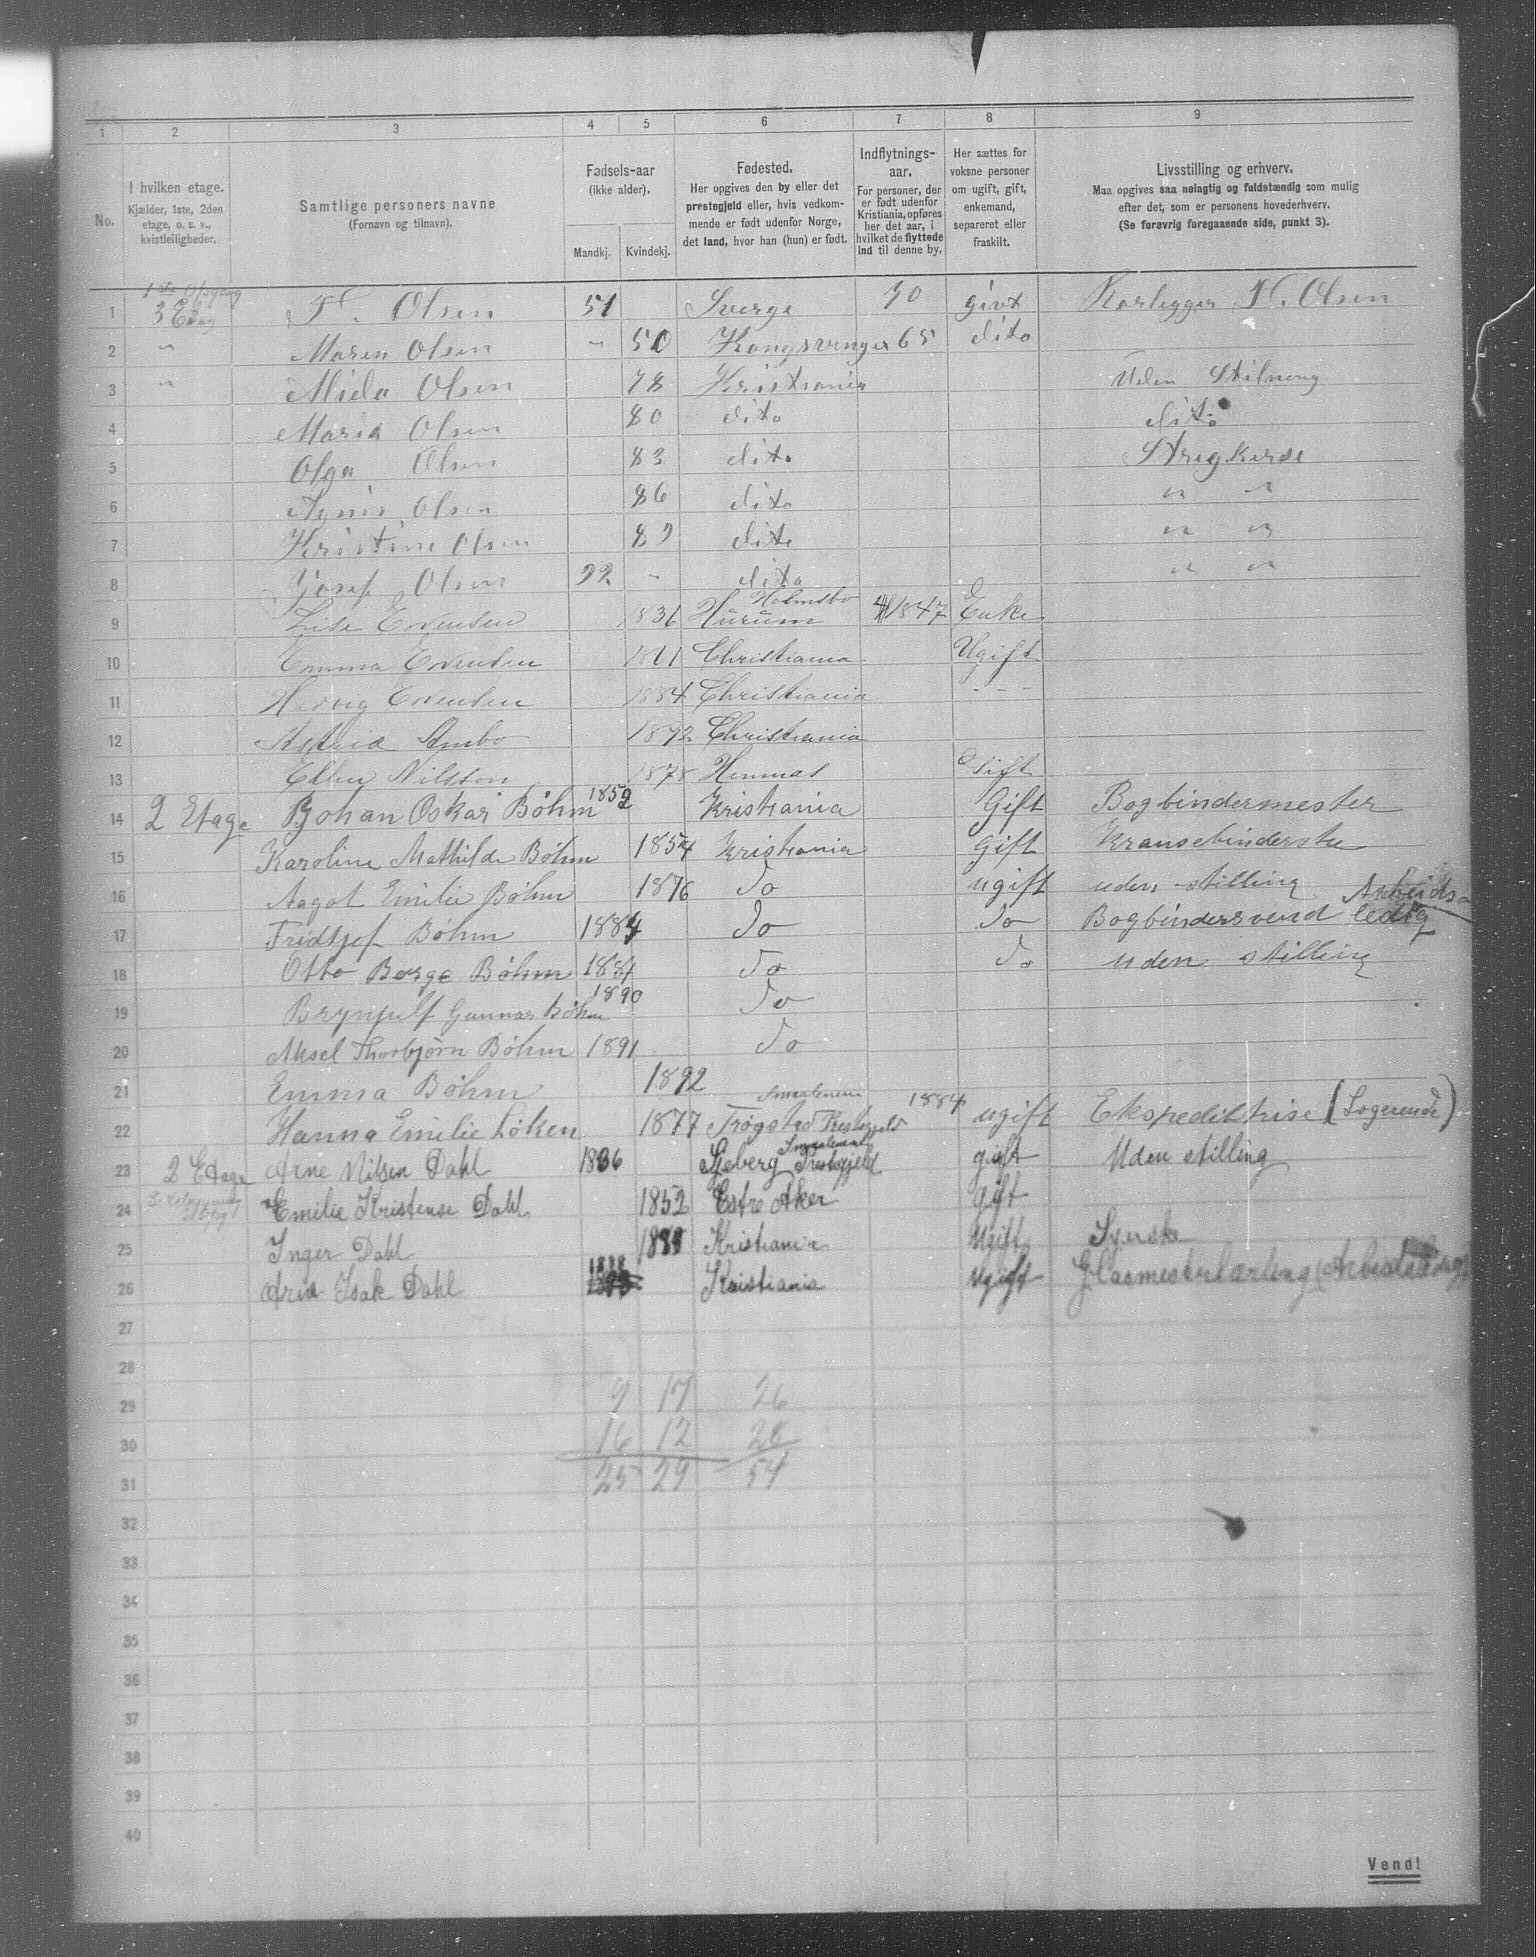 1 2 3 4 5 6 7 8 9
No.
I hvilken etage. Kjælder, 1ste, 2den etage, o. s. v., kvistleiligheder.
Samtlige personers navne (Fornavn og tilnavn).
Fødsels-aar (ikke alder). Mandkj. Kvindekj.
Fødested. Her opgives den by eller det prestegjeld eller, hvis vedkommende er født udenfor Norge, det land, hvor han (hun) er født.
Indflytnings-aar. For personer, der er født udenfor Kristiania, opføres her det aar, i hvilket de flyttede ind til denne by.
Her sættes for voksne personer om ugift, gift, enkemand, separeret eller fraskilt.
Livsstilling og erhverv. Maa opgives saa nøiagtig og fuldstændig som mulig efter det, som er personens hovederhverv. (Se forøvrig foregaaende side, punkt 3).
1 3 Etag Olsen 51 Sverge givt Olsen
2 " Maren Olsen " 50 Kongsvinger 65 dito
3 " Alida Olsen 78 Kristiania Uden Stilning
4 Maria Olsen 80 dito dito
5 Olga Olsen 83 dito
6 Agnis Olsen 86 dito " "
7 Kristine Olsen dito " "
8 Josef Olsen " dito " "
9 Evensen 1836 Hurum Holmsbo 1847 Enke
10 Emma Evensen Christiania Ugift
11 Hedvig Evensen 1884 Christiania - - -
12 Astrid 1892 Christiania
13 Nilsson 1878
14 2 Etage Johan Oskar Bøhm 1852 Kristiania Gift Bogbindermester
15 Karoline Mathilde Bøhm 1854 Kristiania Gift Kransebinderske
16 Aagot Emilie Bøhm 1876 Do ugift uden stilling
17 Fridtjof Bøhm Do Do Bogbindersvend Arbeidsledig
18 Otto Borge Bøhm 1884 Do Do uden stilling
19 Brynjulf Gunnar Bøhm 1890 Do
20 Aksel Thorbjørn Bøhm 1891 Do
21 Emma Bøhm 1892
22 Hanna Emilie Løken 1877 Trøgstad Prestegjeld Smaalenene 1884 ugift Ekspeditrise (Logerende)
23 2 Etage Arne Nilsen Dahl 1836 Sjeberg Prestegjeld Smaalenene gift Uden stilling
24 Emilie Kristense Dahl 1852 Estre Aker gift
25 Inger Dahl Kristiania Ugift
26 Isak Dahl 1888 Kristiania ugift Glasmesterlærling (Arbeidsledig)
27
28
29 9 17 26
30 16 12 28
31 25 29 54
32
33
34
35
36
37
38
39
40
Vend!